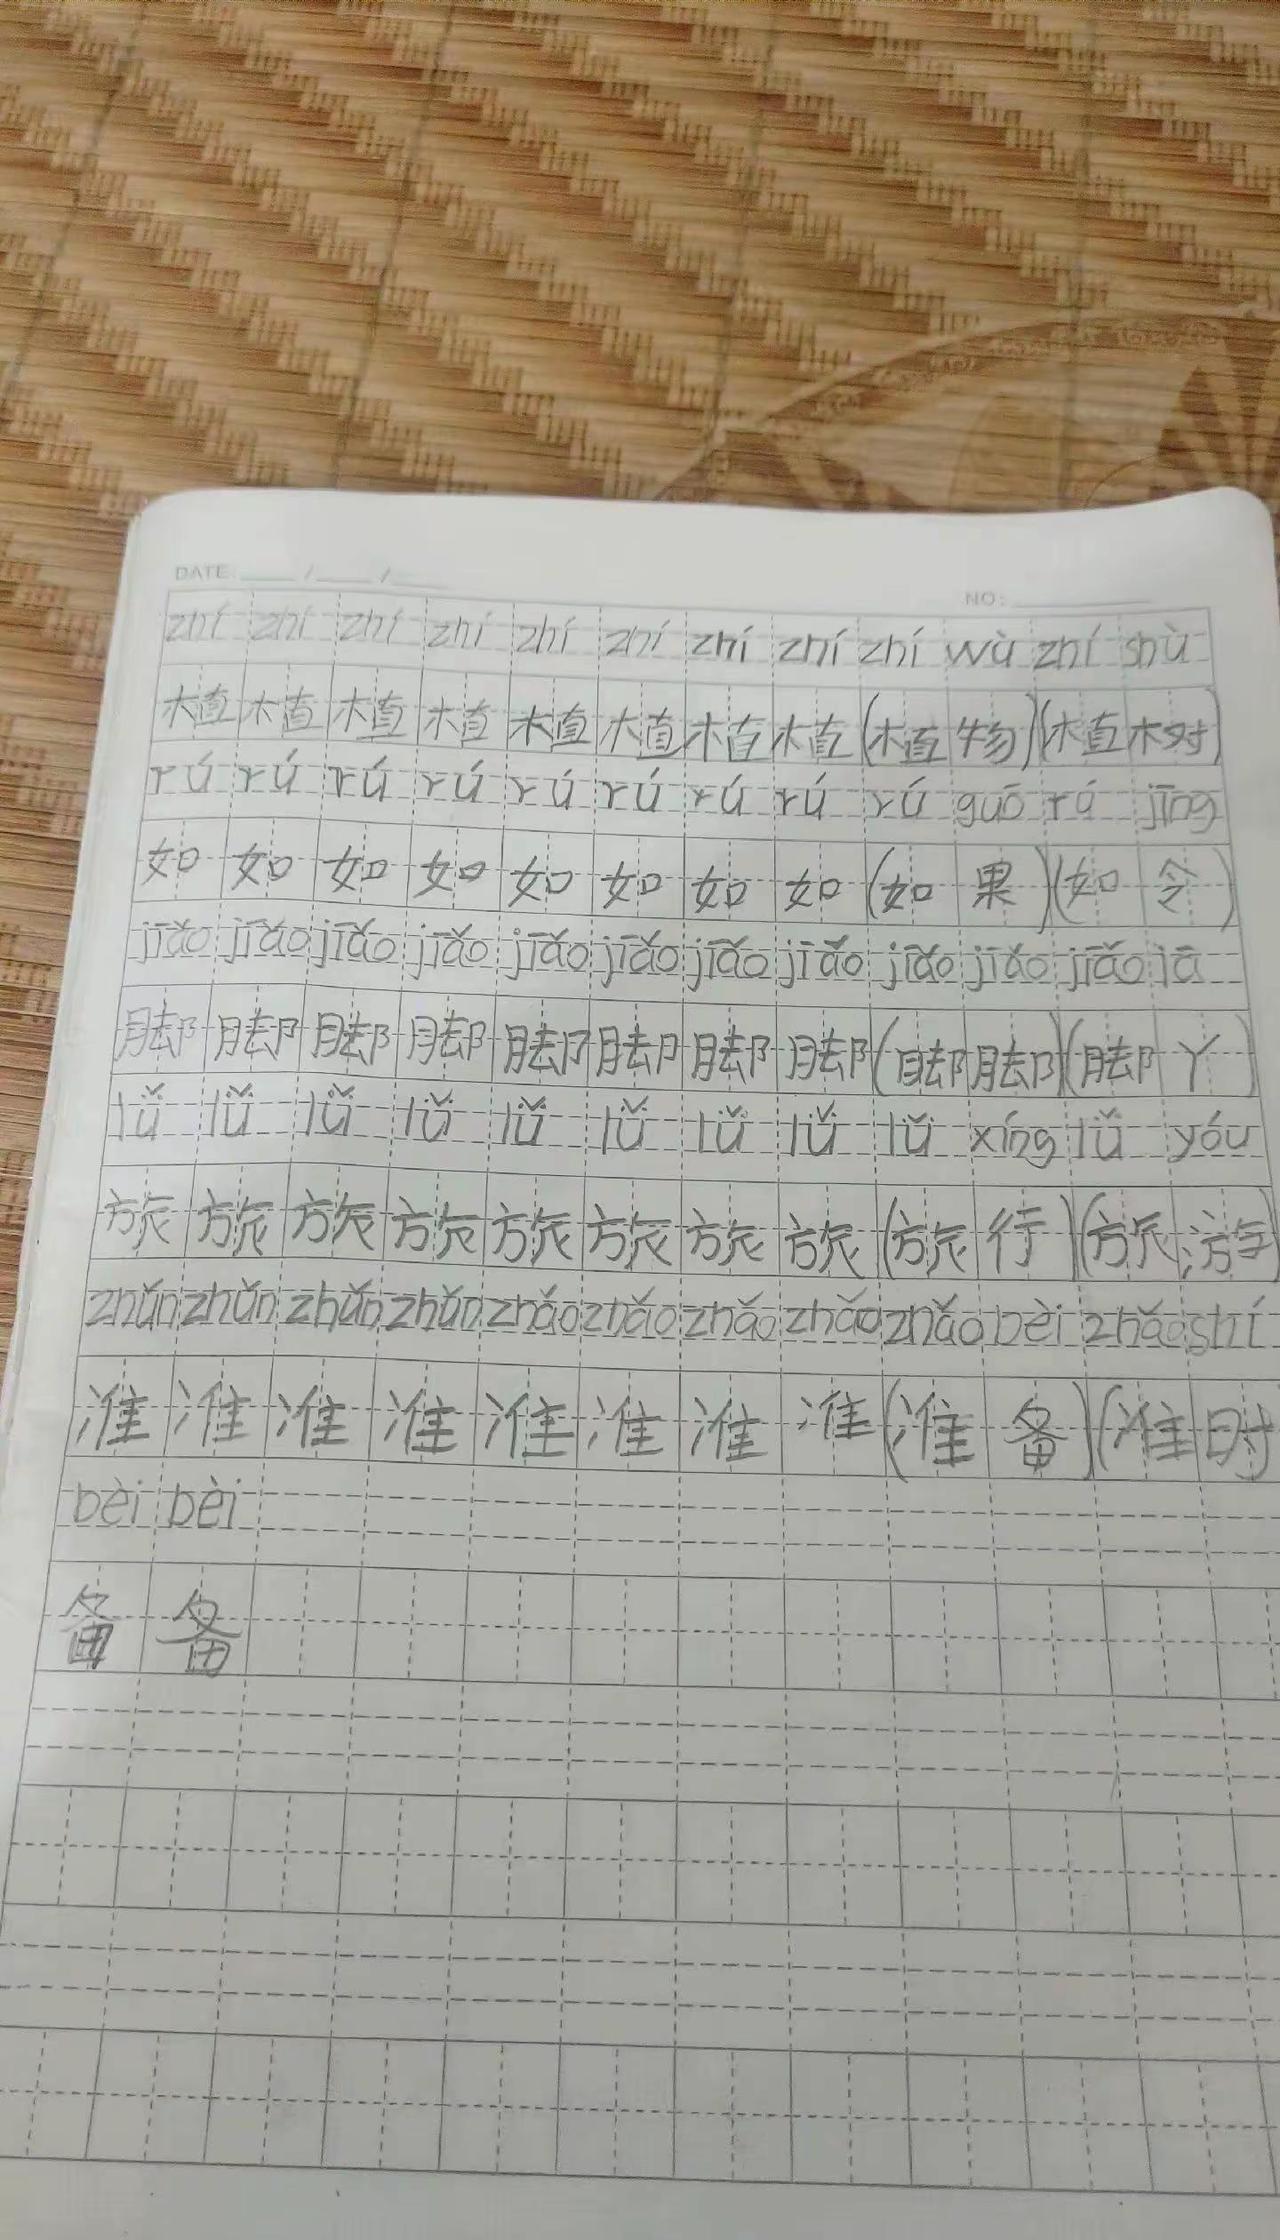 DATE: ____/____/____
NO: ____
zhí zhí zhí zhí zhí zhí zhí zhí zhí wù zhí shù
植 植 植 植 植 植 植 植 (植 物) (植 树)
rú rú rú rú rú rú rú rú rú guǒ rú jīng
如 如 如 如 如 如 如 如 (如 果) (如 令)
jiǎo jiǎo jiǎo jiǎo jiǎo jiǎo jiǎo jiǎo jiǎo jiǎo jiǎo iā
脚 脚 脚 脚 脚 脚 脚 脚 (脚 脚) (脚 丫)
lǚ lǚ lǚ lǚ lǚ lǚ lǚ lǚ lǚ xíng lǚ yóu
旅 旅 旅 旅 旅 旅 旅 旅 (旅 行) (旅 游)
zhǔn zhǔn zhǔn zhǔn zhǎo zhǎo zhǎo zhǎo zhǎo bèi zhǎo shí
准 准 准 准 准 准 准 准 (准 备) (准 时)
bèi bèi
备 备